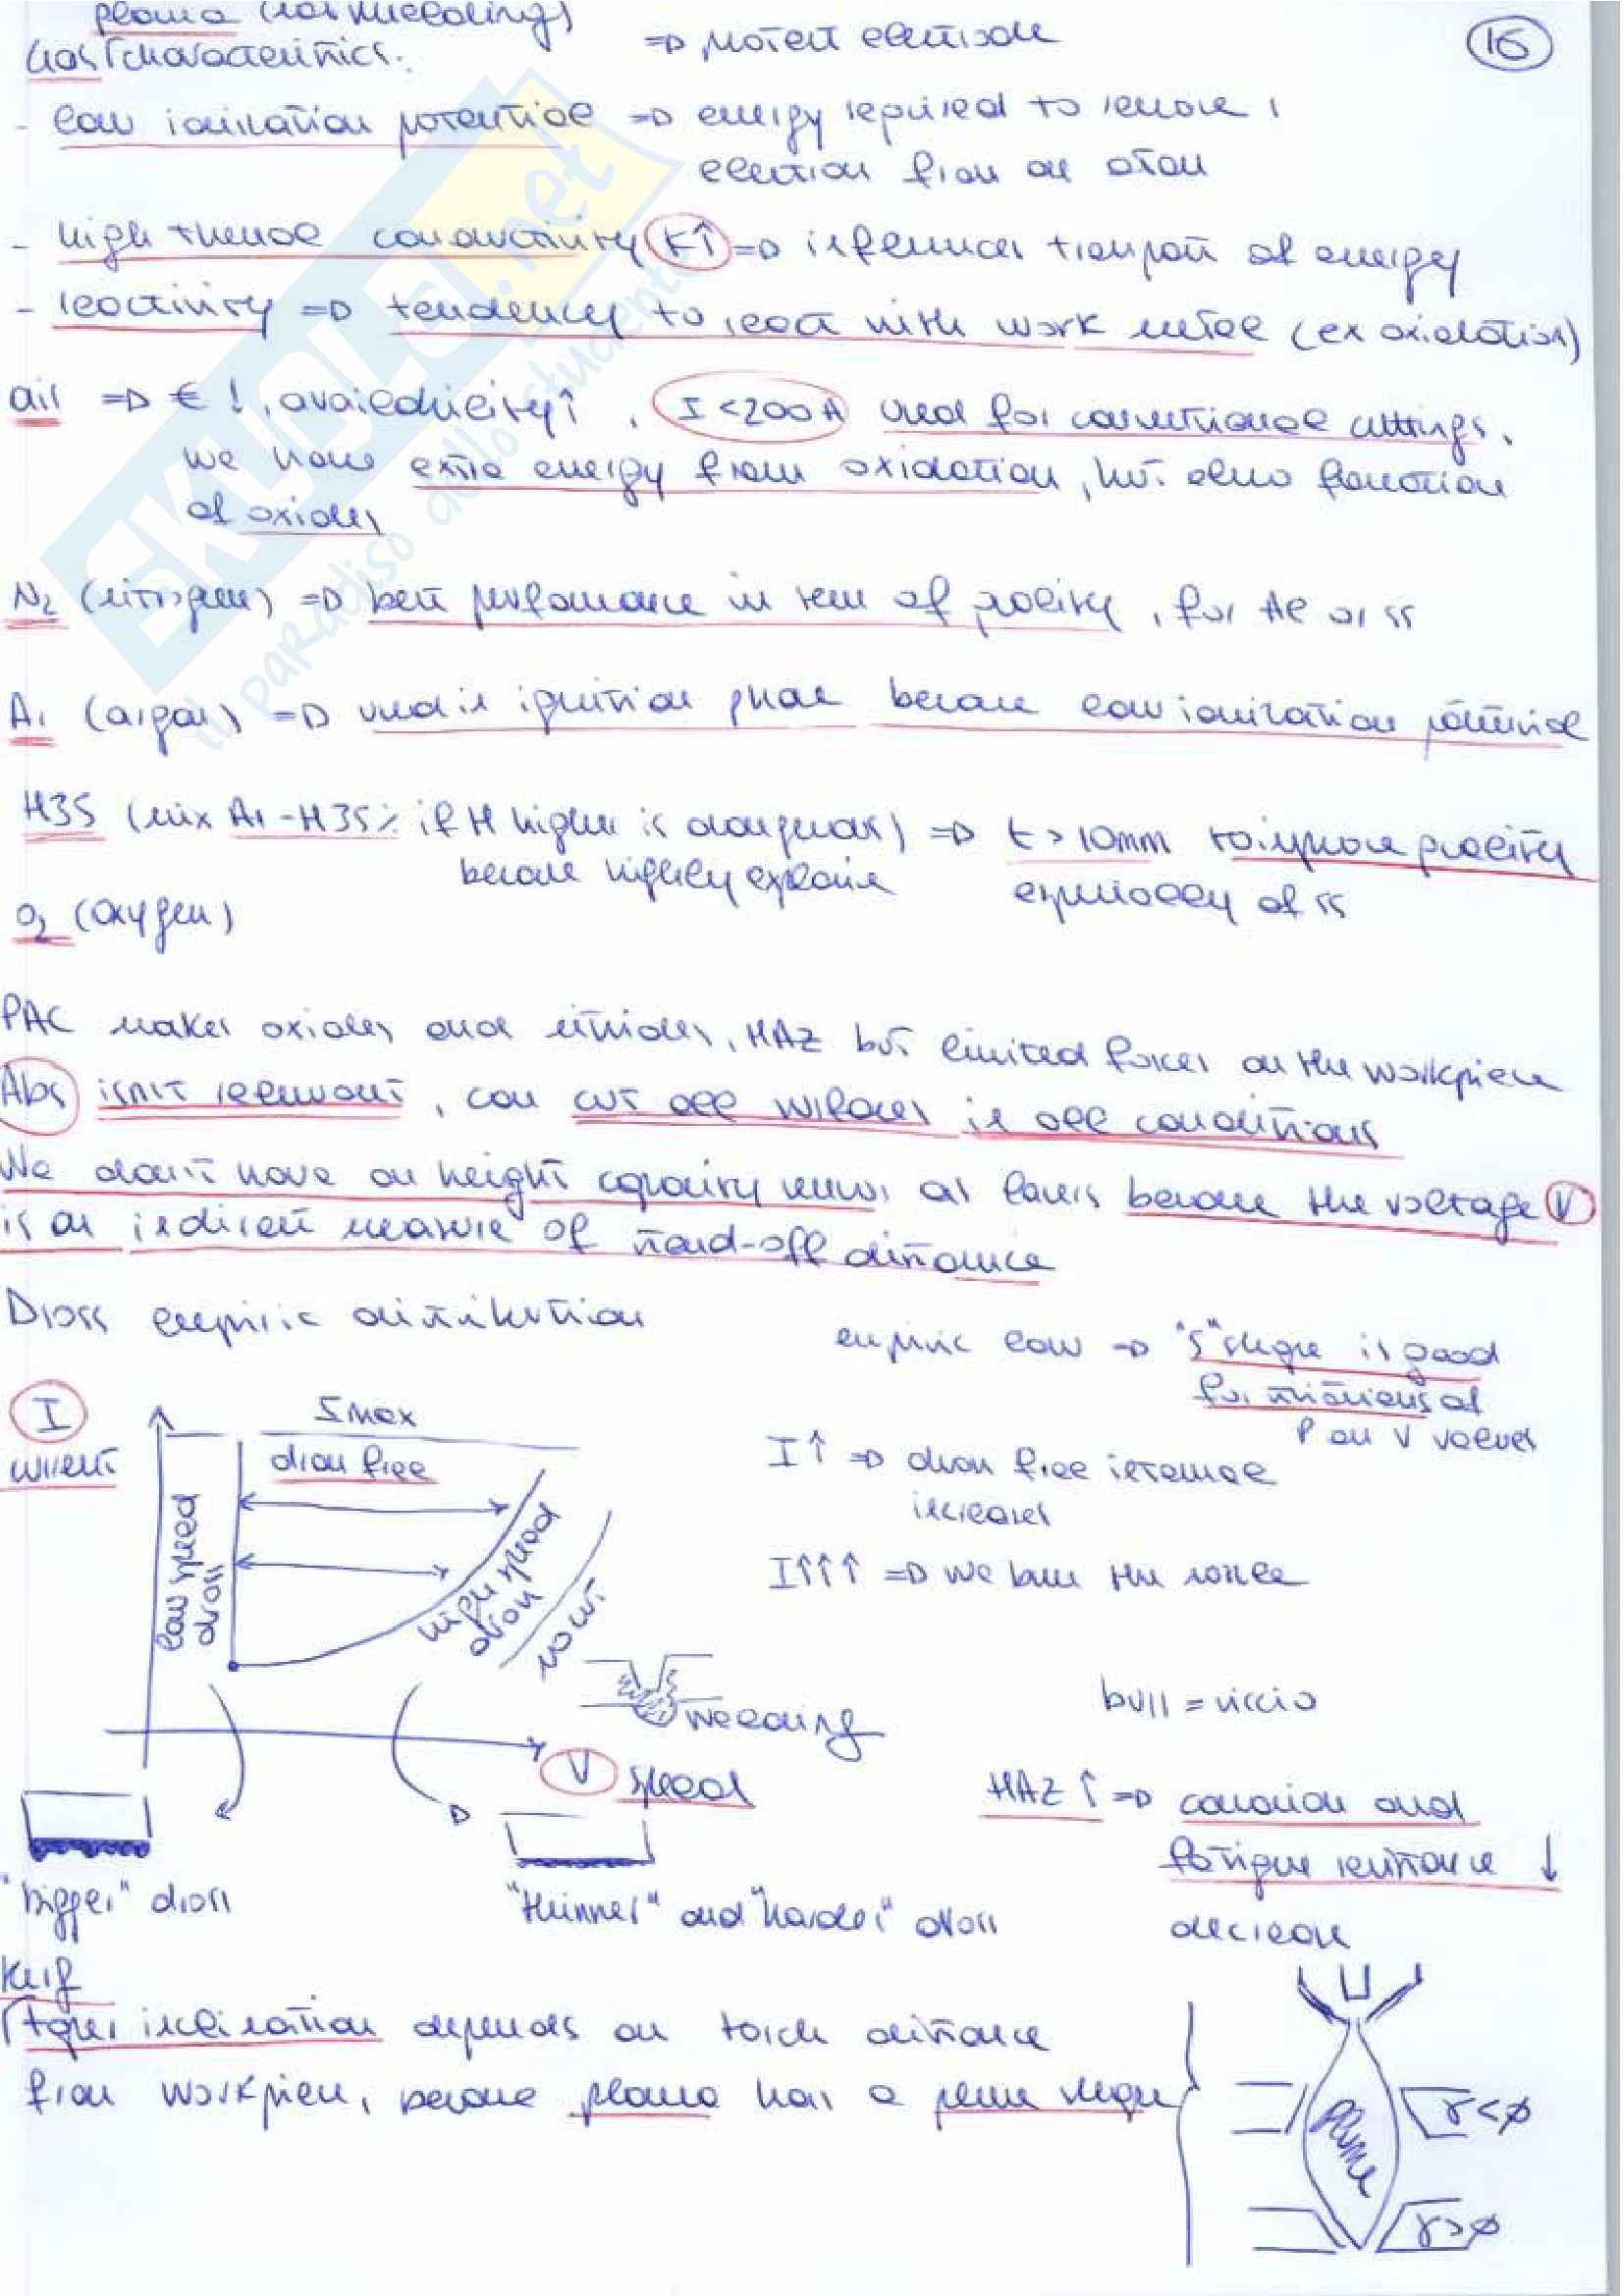 plasma (not shielding)
Gas characteristics.
=> protect electrode
16
- low ionisation potential => energy required to remove 1
electron from an atom
- high thermal conductivity K↑ => influences transport of energy
- reactivity => tendency to react with work metal (ex oxidation)
air => € !, availability↑, I<200A used for conventional cuttings,
we have extra energy from oxidation, but also formation
of oxides
N2 (nitrogen) => best performance in term of quality, for Al or ss
Ar (argon) => used in ignition phase because low ionization potential
H35 (mix Ar-H35% if H higher is dangerous) => t > 10mm to improve quality
because highly explosive
especially of ss
O2 (oxygen)
PAC makes oxides and nitrides, HAZ but limited forces on the workpiece
Abs isn't relevant, can cut all surfaces in all conditions
We don't have an height capacity sensor as lasers because the voltage V
is an indirect measure of stand-off distance
Dross empiric distribution
empiric law => "S" shape is good
for striations at
P on V values
I
current
Imax
dross free
low speed
dross
high speed
dross
no cut
I↑ => dross free interval
increases
I↑↑↑ => we burn the nozzle
welding
V speed
burr = riccio
HAZ↑ => corrosion and
fatigue resistance ↓
decrease
"bigger" dross
"thinner" and "harder" dross
Kerf
taper inclination depends on torch distance
from workpiece, because plasma has a plume shape
plume
γ<ø
γ>ø
SKUOLA.net
il paradiso dello studente